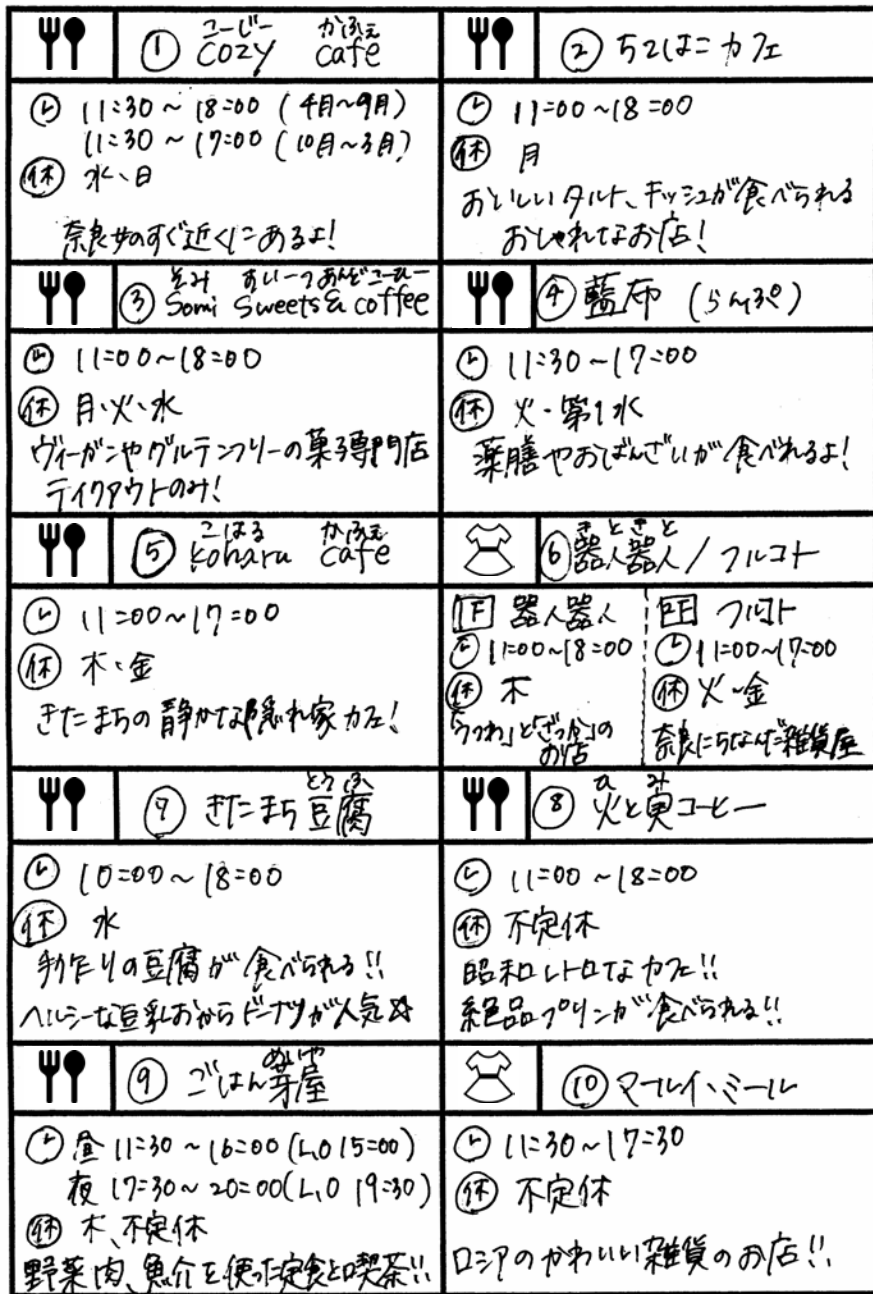 こーじー かふぇ
① cozy cafe
🕒 11:30～18:00（4月～9月）
11:30～17:00（10月～3月）
休 水、日
奈良女のすぐ近くにあるよ！
② ちてはこカフェ
11:00～18:00
休 月
おいしいタルト、キッシュが食べられる
おしゃれなお店！
そみ すいーつあんどこーひー
③ Somi Sweets & coffee
11:00～18:00
休 月・火・水
ヴィーガンやグルテンフリーの菓子専門店
テイクアウトのみ！
④ 藍布（らんぷ）
11:30～17:00
休 火・第1水
薬膳やおばんざいが食べれるよ！
こはる かふぇ
⑤ koharu cafe
11:00～17:00
休 木・金
きたまちの静かな隠れ家カフェ！
きときと
⑥ 器人器人/フルコト
1F 器人器人
11:00～18:00
休 木
「うつわ」と「ざっか」の
お店
フルコト
11:00～17:00
休 火～金
奈良にちなんだ雑貨屋
とうふ
⑦ きたまち豆腐
10:00～18:00
休 水
手作りの豆腐が食べられる!!
ヘルシーな豆乳おからドーナツが人気☆
ひ み
⑧ 火と実コーヒー
11:00～18:00
休 不定休
昭和レトロなカフェ!!
絶品プリンが食べられる!!
めいや
⑨ ごはん芽屋
昼 11:30～16:00(L.O 15:00)
夜 17:30～20:00(L.O 19:30)
休 木、不定休
野菜肉、魚介を使った定食と喫茶!!
⑩ マールイ・ミール
11:30～17:30
休 不定休
ロシアのかわいい雑貨のお店!!